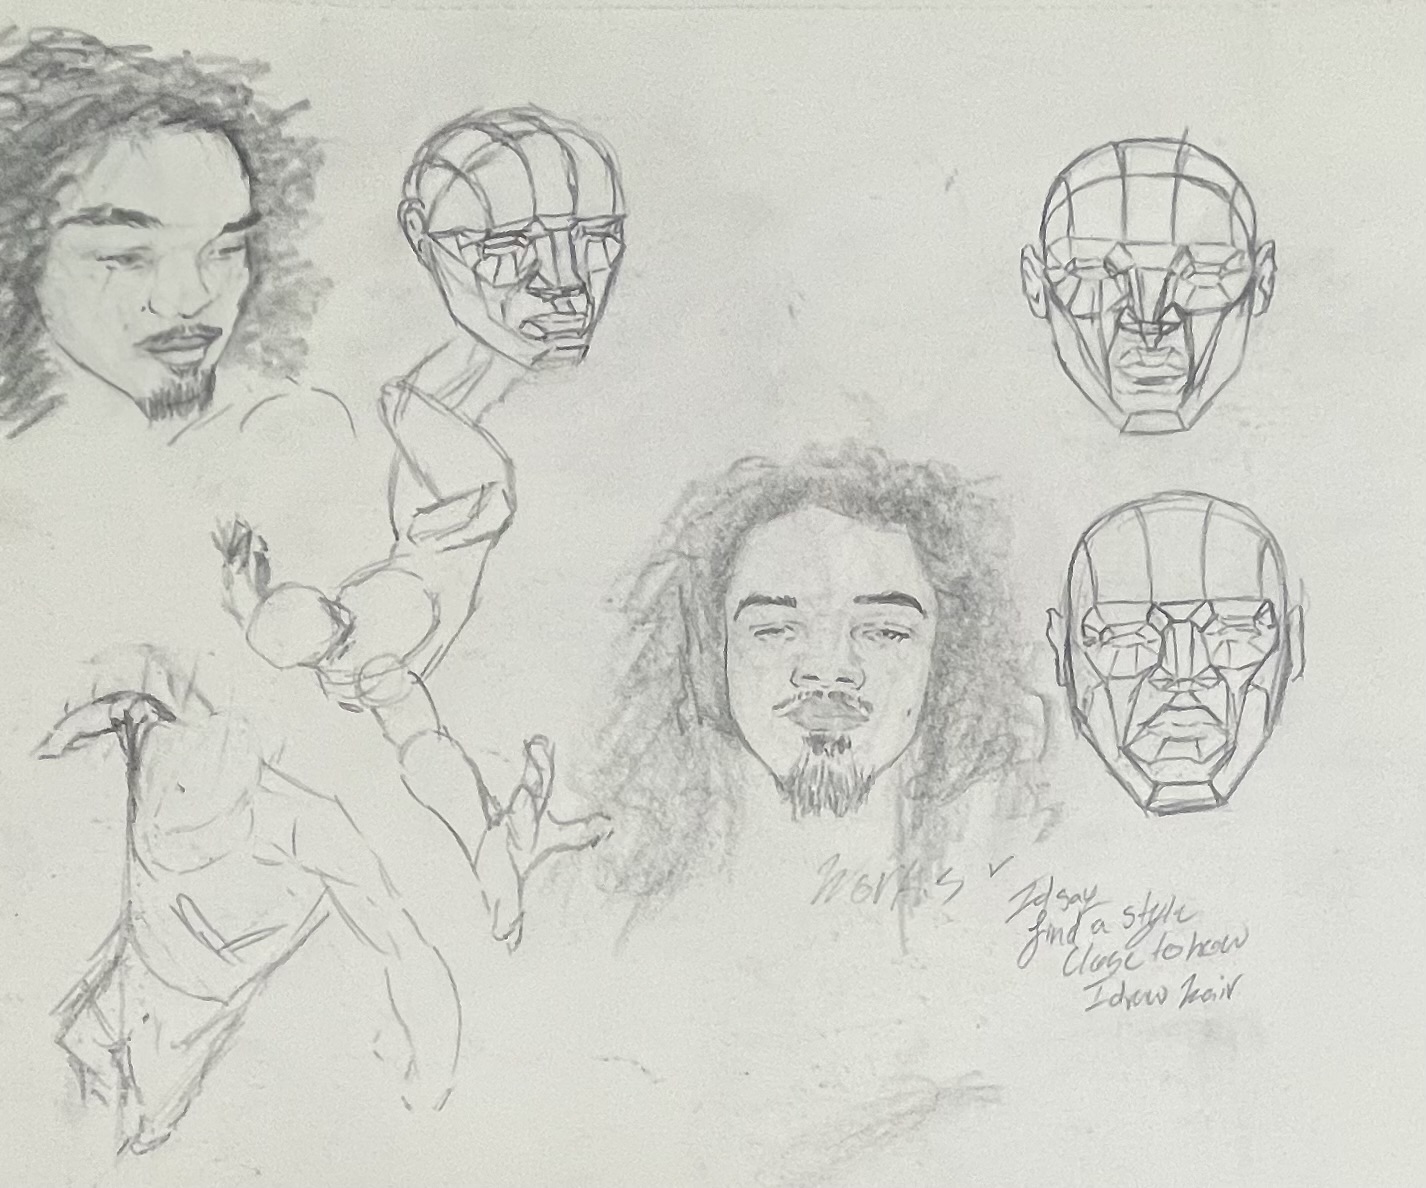 Works ✓
I'd say
find a style
Close to how
I draw hair